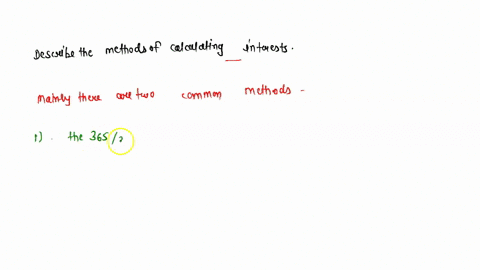 Describe the methods of calculating __ interests.
Mainly there are two common methods -
1). the 365/